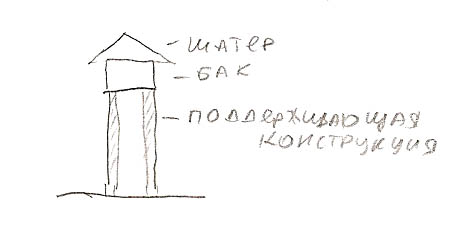 ШАТЕР
БАК
ПОДДЕРЖИВАЮЩАЯ
КОНСТРУКЦИЯ